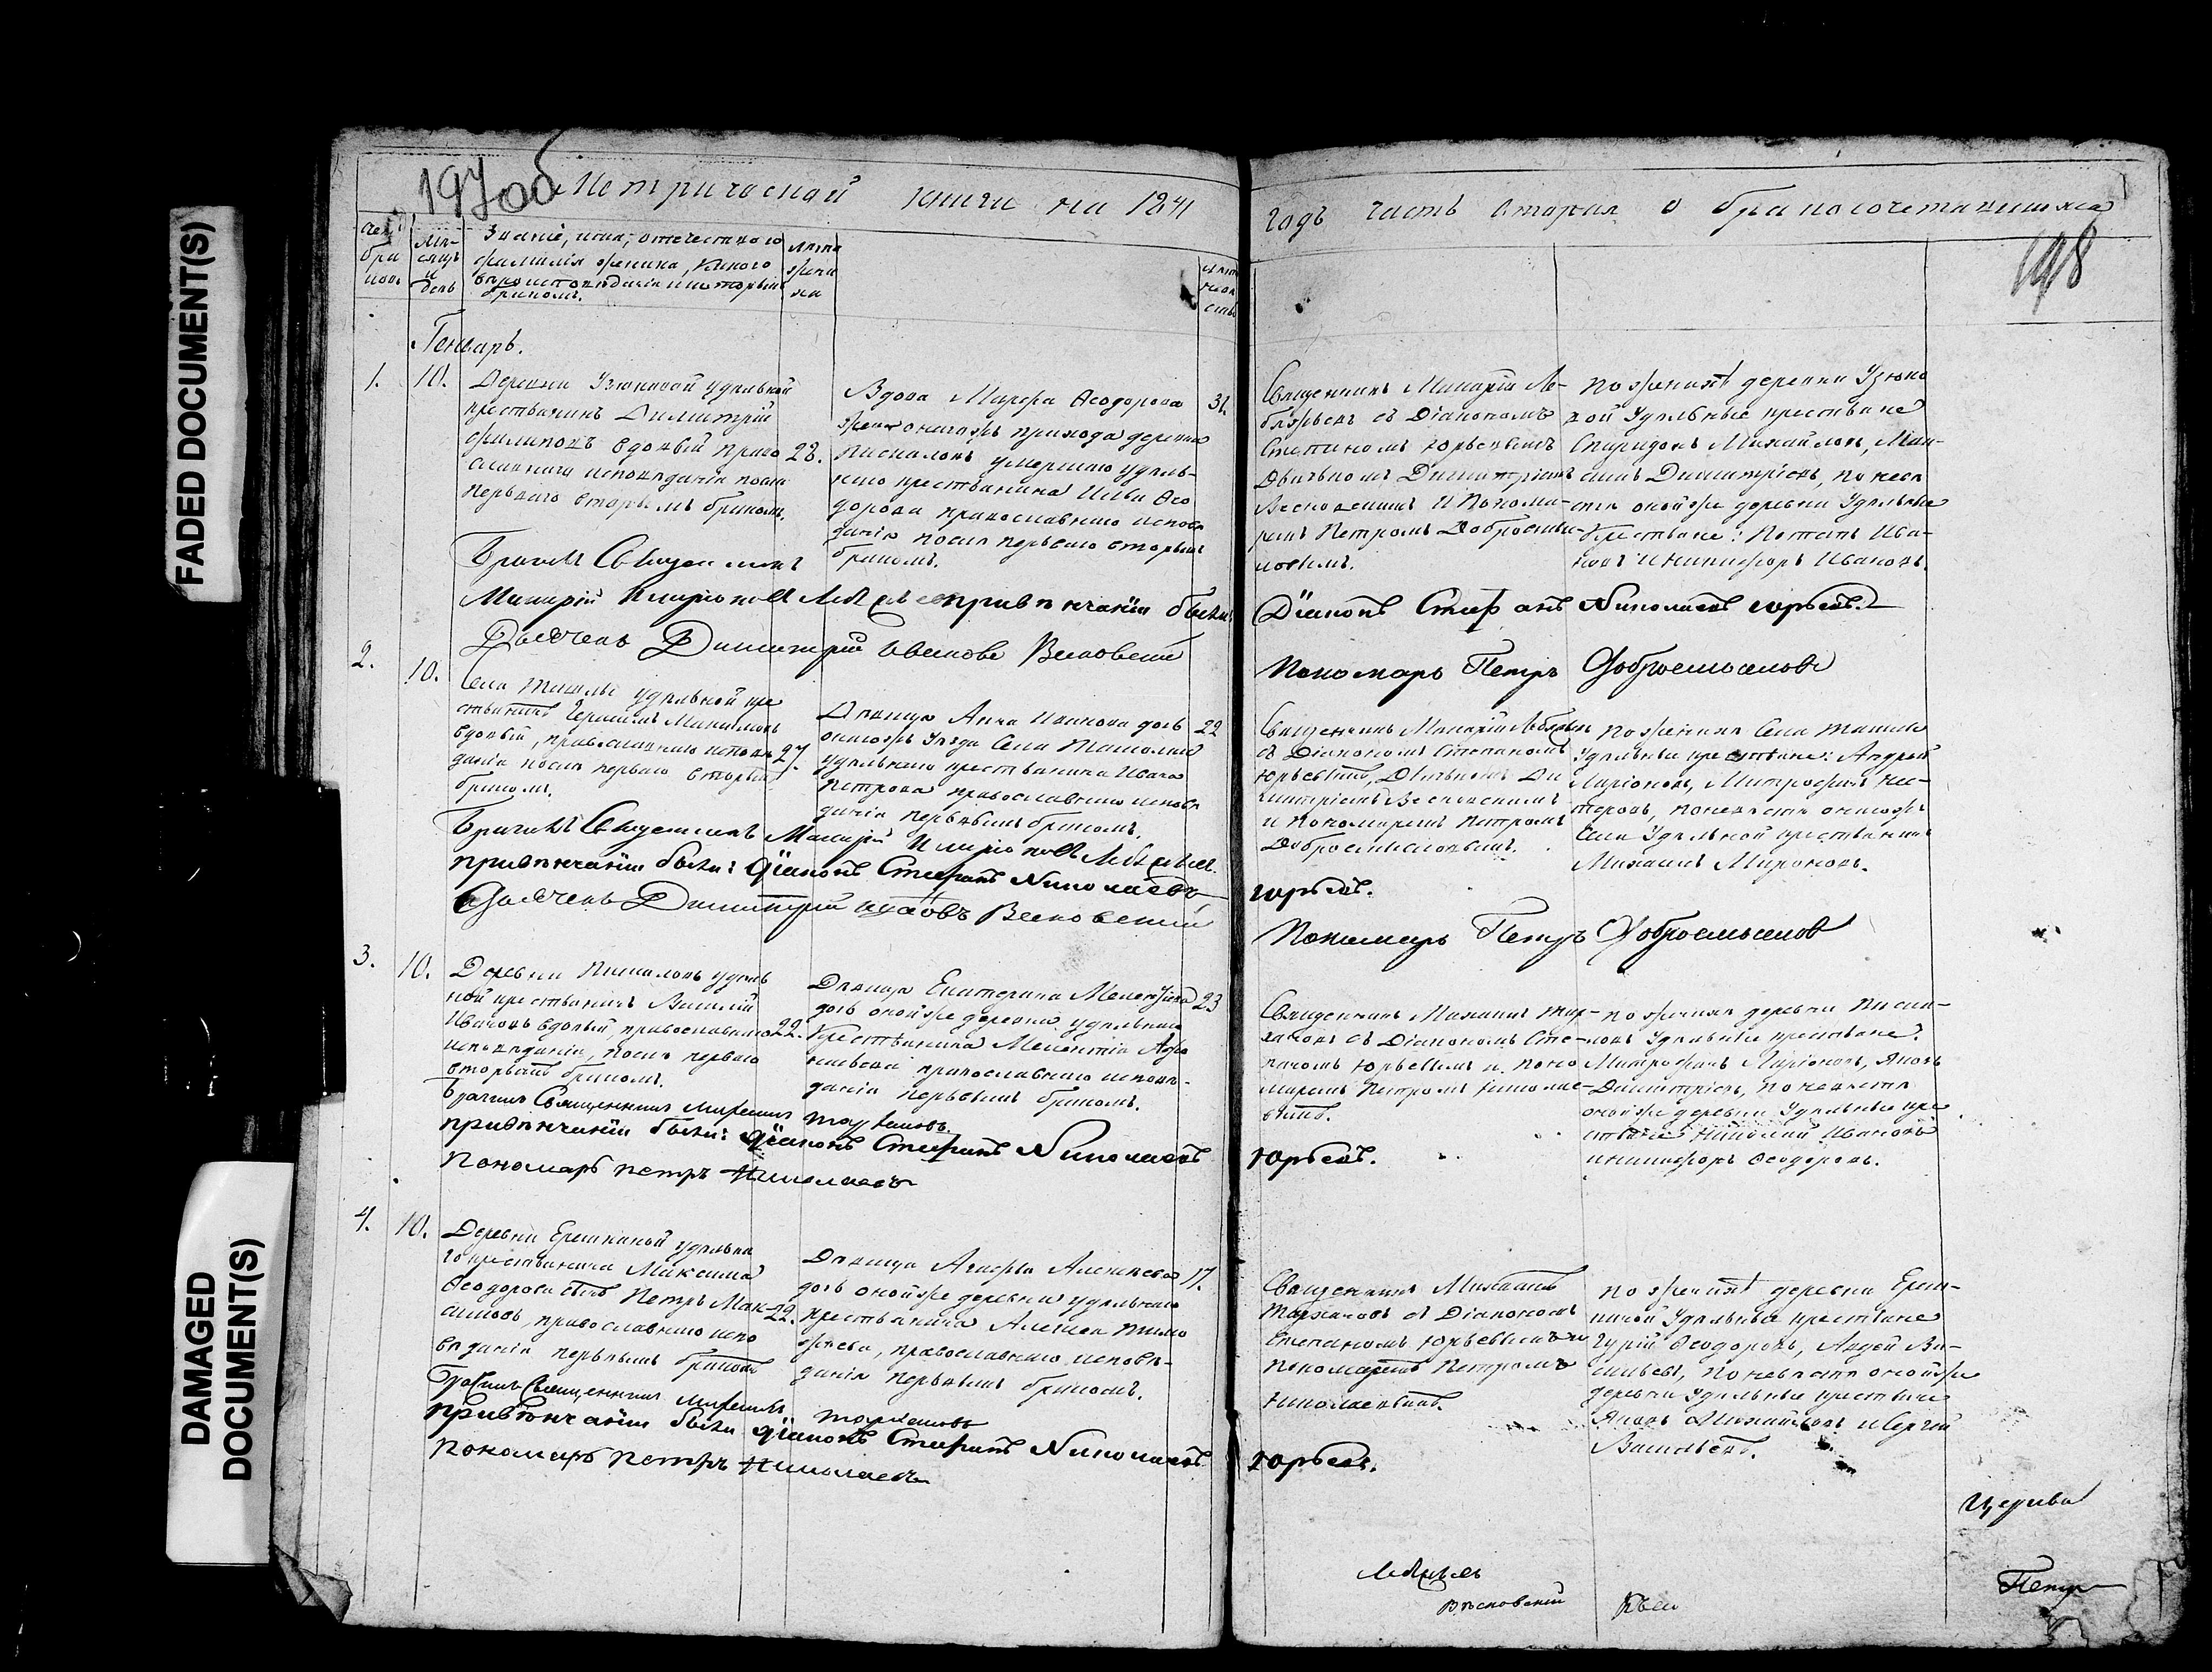 FADED DOCUMENT(S)
DAMAGED
DOCUMENT(S)
197 об
Метрической книги на 1841
годъ часть вторая о бракосочетавшихся
198
Счетъ
бра
ковъ
Мѣ-
сяцъ
и
день
Званіе, имя, отечество
фамилія жениха, какого
вѣроисповѣданія и которымъ
бракомъ.
Лѣта
жени
ха
Генварь.
1. 10.
Деревни Узюковой удѣльной
крестьянинъ Димитрій
Филиповъ вдовый право 28.
славнаго исповѣданія послѣ
перваго вторымъ бракомъ.
Вдова Марфа Ѳеодорова 31.
онагожъ прихода деревни
Пискаловъ умершаго удѣль-
наго крестьянина Ильи Ѳео
дорова православнаго испове
данія послѣ перваго вторымъ
бракомъ.
Священникъ Макарій Ле-
бяжьевъ съ Діакономъ
Степаномъ Юрьевымъ
Дьячкомъ Димитріемъ
Весновскимъ и Понома-
ремъ Петромъ Добросмы-
словымъ.
По женихѣ деревни Узюко
вой Удѣльные крестьяне
Спиридонъ Михайловъ, Мак-
симъ Димитріевъ, по невѣ
стѣ оной же деревни Удѣльные
Крестьяне: Потапъ Ива-
новъ и Никифоръ Ивановъ.
Бракъ Священникъ
Макарій Иларіоновъ при вѣнчаніи были:
Діаконъ Стефанъ Николаевъ Юрьевъ.
Дьячекъ Димитрій Ивановъ Весновскій
Пономарь Петръ Добросмысловъ
2. 10.
Села Ташолы удѣльной кре
стьянинъ Герасимъ Максимовъ
вдовый, православнаго исповѣ 27.
данія послѣ перваго вторымъ
бракомъ.
Дѣвица Анна Иванова дочь 22
онагожъ уѣзда Села Ташолки
удѣльнаго крестьянина Ивана
Петрова православнаго исповѣ
данія первымъ бракомъ.
Священникъ Макарій Лебяжьевъ
съ Діакономъ Степаномъ
Юрьевымъ, Дьячкомъ Ди
митріемъ Весновскимъ
и Пономаремъ Петромъ
Добросмысловымъ.
по женихѣ Села Ташолы
Удѣльные крестьяне: Андрей
Ларіоновъ, Митрофанъ Не-
стеровъ, по невѣстѣ онагожъ
Села Удѣльной крестьянинъ
Михаилъ Мироновъ.
Священникъ Макарій Иларіоновъ
при вѣнчаніи были: Діаконъ Стефанъ Николаевъ
Юрьевъ.
Дьячекъ Димитрій Весновскій
Пономарь Петръ Добросмысловъ
3. 10.
Деревни Пискаловъ удѣль
ной крестьянинъ Василій
Ивановъ вдовый, православнаго 22.
исповѣданія, послѣ перваго
вторымъ бракомъ.
Дѣвица Екатерина Мелентіева 23
дочь оной же деревни удѣльнаго
Крестьянина Мелентія Афа
насьева православнаго исповѣ-
данія первымъ бракомъ.
Священникъ Михаилъ Тар-
хановъ съ Діакономъ Сте-
паномъ Юрьевымъ и Поно
маремъ Петромъ Николае-
вымъ.
по женихѣ деревни Писка-
ловъ Удѣльные крестьяне:
Митрофанъ Ларіоновъ, Яковъ
Димитріевъ, по невѣстѣ
оной же деревни Удѣльные кре
стьяне Николай Ивановъ
и Никифоръ Ѳеодоровъ.
Священникъ Михаилъ Тархановъ
при вѣнчаніи были: Діаконъ Стефанъ Николаевъ
Юрьевъ.
Пономарь Петръ Николаевъ
4. 10.
Деревни Ерешкиной удѣльна
го крестьянина Максима
Ѳеодорова сынъ Петръ Мак- 22.
симовъ, православнаго испо
вѣданія первымъ бракомъ
Дѣвица Агафья Алексѣева 17.
дочь оной же деревни удѣльнаго
крестьянина Алексѣя Тимо
фѣева, православнаго исповѣ-
данія первымъ бракомъ.
Священникъ Михаилъ
Тархановъ съ Діакономъ
Степаномъ Юрьевымъ и
Пономаремъ Петромъ
Николаевымъ.
по женихѣ деревни Ереш-
киной Удѣльные крестьяне
Гурій Ѳеодоровъ, Авдей Ва-
сильевъ, по невѣстѣ оной же
деревни Удѣльные крестьяне
Яковъ Михайловъ и Сергей
Васильевъ.
Священникъ Михаилъ Тархановъ
При вѣнчаніи были Діаконъ Стефанъ Николаевъ
Юрьевъ.
Пономарь Петръ Николаевъ
Церкви
Весновскій
Петръ